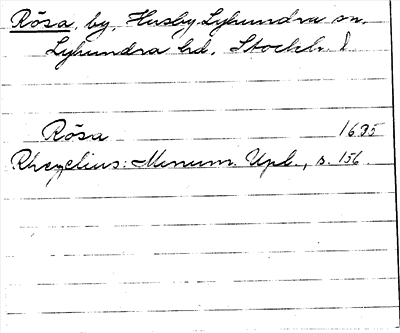 Rösa, by, Husby-Lyhundra sn.
Lyhundra hd, Stockh. l
Rösa 1695
Rhezelius: Monum. Upl., s. 156.